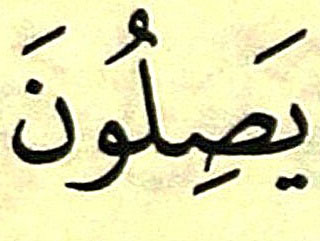 يَصِلُونَ